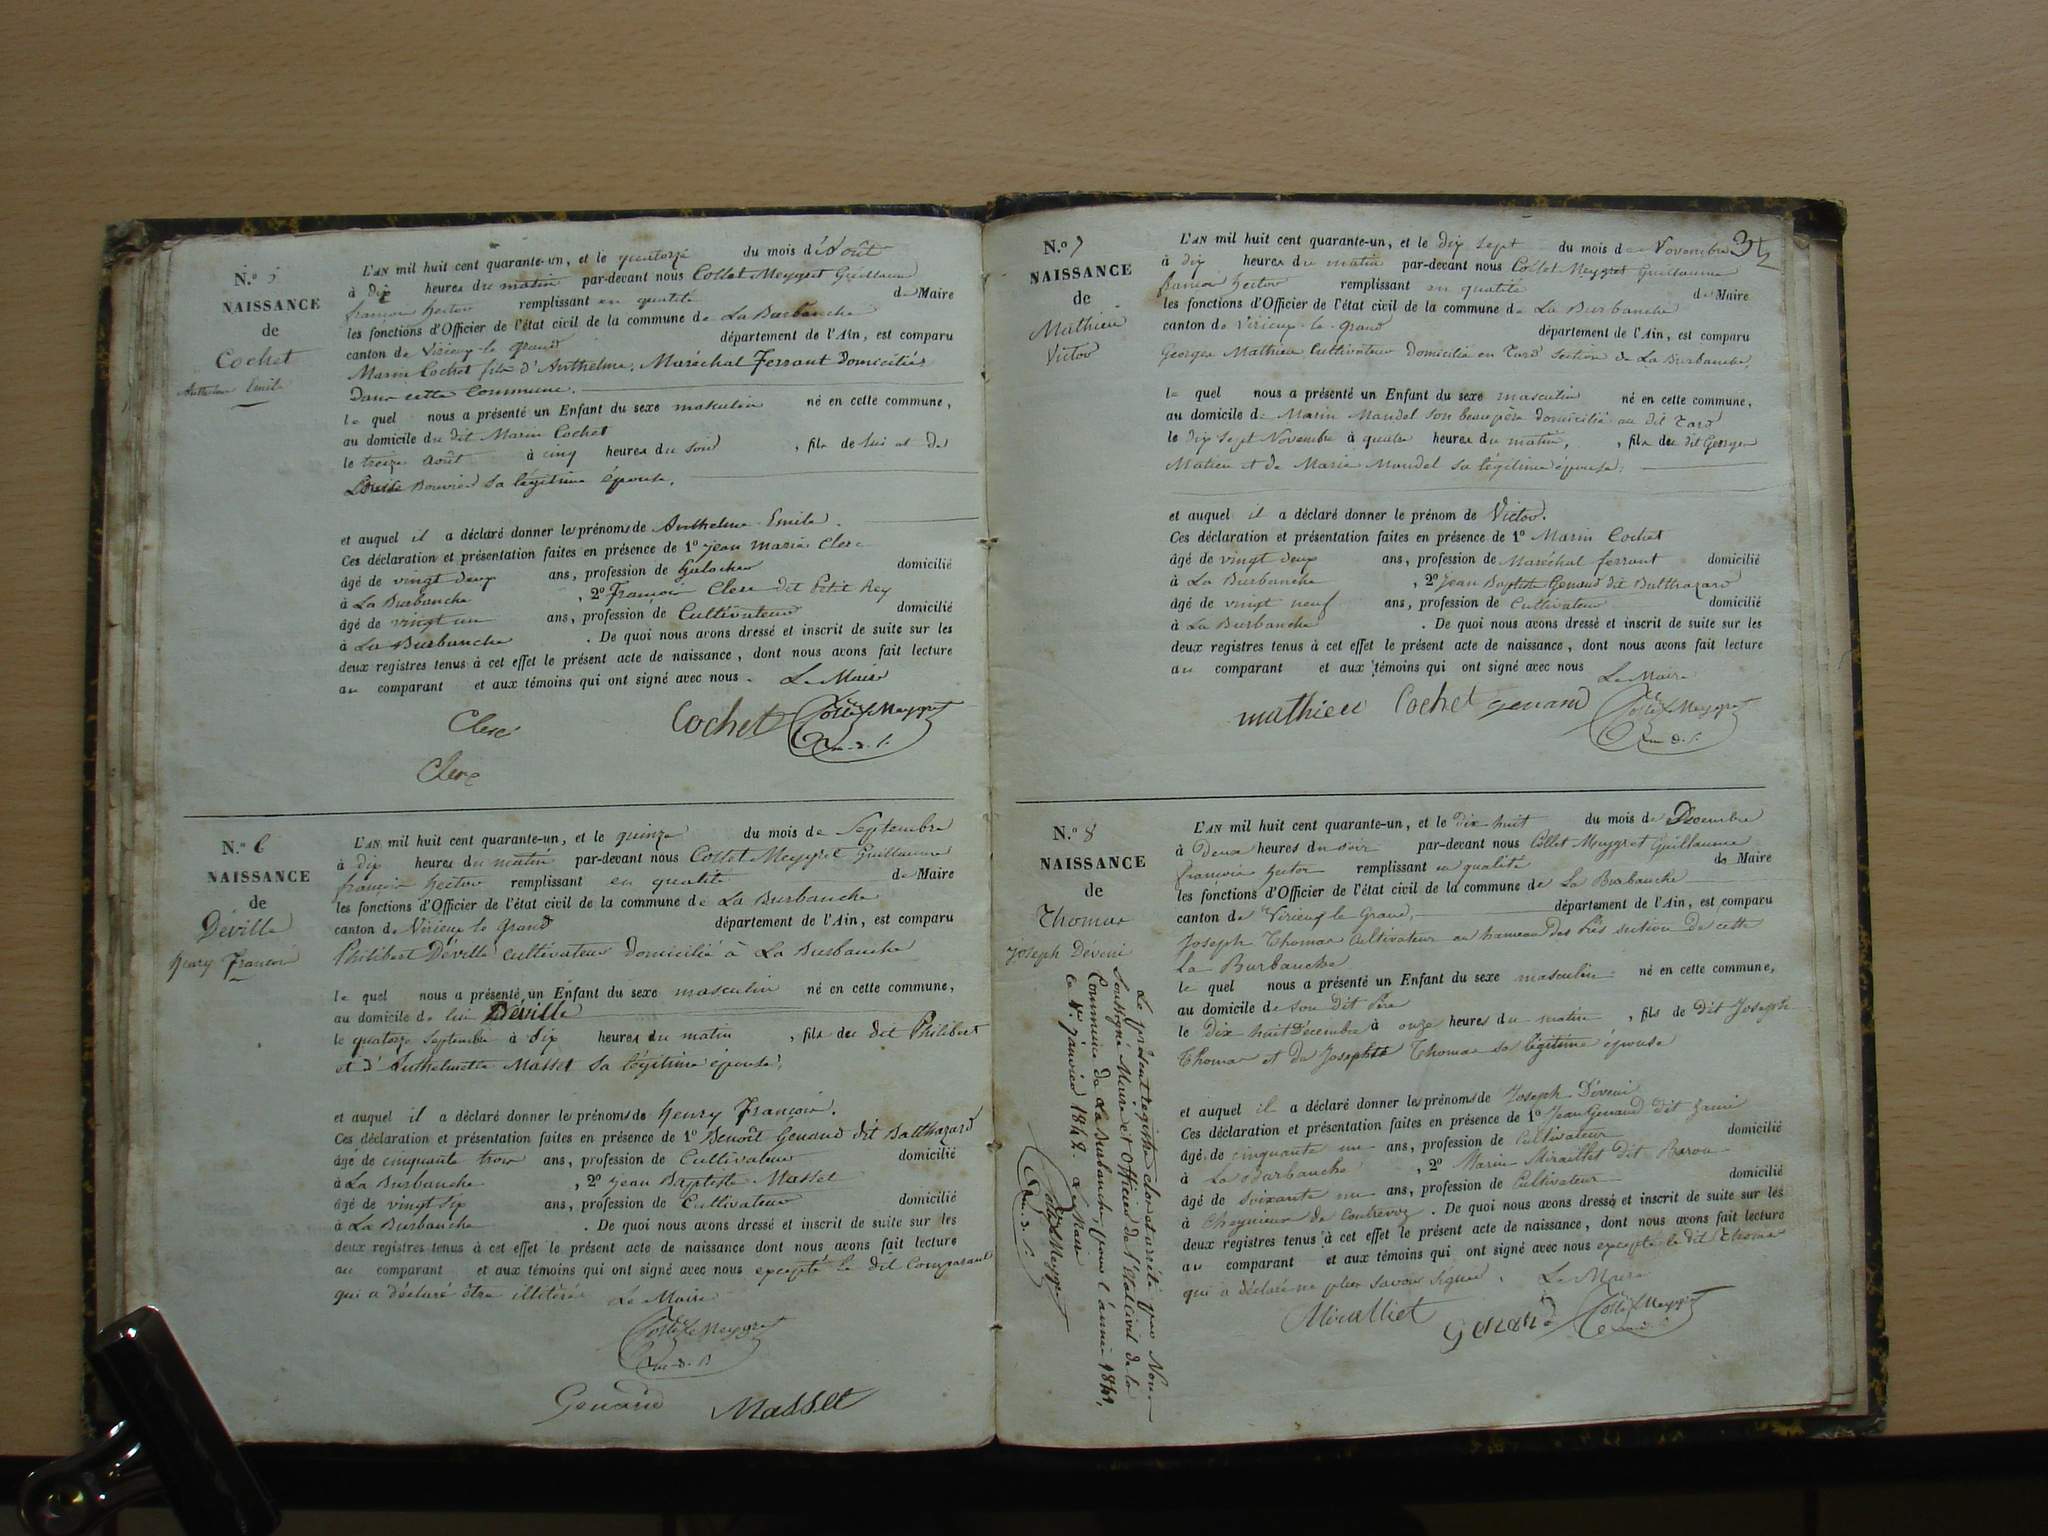 N.º 5
NAISSANCE
de
Cochet
Anthelme Emile
L'AN mil huit cent quarante-un, et le quatorze du mois d'Août
à dix heures du matin par-devant nous Collet Meygret Guillaume
françois hector remplissant en qualité de Maire
les fonctions d'Officier de l'état civil de la commune de La Burbanche
canton de Virieux-le grand département de l'Ain, est comparu
Marin Cochet fils d'Anthelme, Maréchal Ferrant Domiciliés
Dans cette Commune.
le quel nous a présenté un Enfant du sexe masculin né en cette commune,
au domicile du dit Marin Cochet
le treize août à cinq heures du soir, fils de lui et de
Louise Bouvier sa légitime épouse.
et auquel il a déclaré donner les prénoms de Anthelme Emile.
Ces déclaration et présentation faites en présence de 1º jean marie Clerc
âgé de vingt deux ans, profession de domicilié
à La Burbanche, 2º François Clerc dit Petit Rey
âgé de vingt un ans, profession de Cultivateur domicilié
à La Burbanche. De quoi nous avons dressé et inscrit de suite sur les
deux registres tenus à cet effet le présent acte de naissance, dont nous avons fait lecture
au comparant et aux témoins qui ont signé avec nous. Le Maire
Clerc Cochet Collet Meygret
Clerc
N.º 6
NAISSANCE
de
Déville
henry François
L'AN mil huit cent quarante-un, et le quinze du mois de Septembre
à dix heures du matin par-devant nous Collet Meygret Guillaume
françois hector remplissant en qualité de Maire
les fonctions d'Officier de l'état civil de la commune de La Burbanche
canton de Virieux le Grand département de l'Ain, est comparu
Philibert Déville cultivateur domicilié à La Burbanche
le quel nous a présenté un Enfant du sexe masculin né en cette commune,
au domicile de lui Déville
le quatorze Septembre à dix heures du matin, fils du dit Philibert
et d'Anthelmette Masset sa légitime épouse,
et auquel il a déclaré donner les prénoms de henry François.
Ces déclaration et présentation faites en présence de 1º Benoît Genand dit Balthazard
âgé de cinquante trois ans, profession de Cultivateur domicilié
à La Burbanche, 2º jean Baptiste Masset
âgé de vingt six ans, profession de Cultivateur domicilié
à La Burbanche. De quoi nous avons dressé et inscrit de suite sur les
deux registres tenus à cet effet le présent acte de naissance dont nous avons fait lecture
au comparant et aux témoins qui ont signé avec nous excepté le dit Comparant
qui a déclaré être illitéré Le Maire
Collet Meygret
Genand Masset
35
N.º 7
NAISSANCE
de
Mathieu
Victor
L'AN mil huit cent quarante-un, et le dix sept du mois de Novembre
à dix heures du matin par-devant nous Collet Meygret Guillaume
françois hector remplissant en qualité de Maire
les fonctions d'Officier de l'état civil de la commune de La Burbanche
canton de Virieux-le-grand département de l'Ain, est comparu
Georges Mathieu Cultivateur Domicilié en Tard section de La Burbanche,
le quel nous a présenté un Enfant du sexe masculin né en cette commune,
au domicile de Marin Mandel son beau père domicilié au dit Tard
le dix sept Novembre à quatre heures du matin, fils du dit Georges
Matieu et de Marie Mandel sa légitime épouse;
et auquel il a déclaré donner le prénom de Victor.
Ces déclaration et présentation faites en présence de 1º Marin Cochet
âgé de vingt deux ans, profession de Maréchal ferrant domicilié
à La Burbanche, 2º jean Baptiste Genand dit Balthazard
âgé de vingt neuf ans, profession de Cultivateur domicilié
à La Burbanche. De quoi nous avons dressé et inscrit de suite sur les
deux registres tenus à cet effet le présent acte de naissance, dont nous avons fait lecture
au comparant et aux témoins qui ont signé avec nous
Le Maire
mathieu Cochet genand Collet Meygret
N.º 8
NAISSANCE
de
Thomas
Joseph Déveni
L'AN mil huit cent quarante-un, et le dix huit du mois de Décembre
à Deux heures du soir par-devant nous Collet Meygret Guillaume
françois hector remplissant en qualité de Maire
les fonctions d'Officier de l'état civil de la commune de La Burbanche
canton de Virieux le Grand, département de l'Ain, est comparu
Joseph Thomas Cultivateur au hameau des Prés section de cette
La Burbanche
le quel nous a présenté un Enfant du sexe masculin né en cette commune,
au domicile de son dit Père
le Dix huit Décembre à onze heures du matin, fils de dit Joseph
Thomas et de Josephte Thomas sa légitime épouse
et auquel il a déclaré donner les prénoms de Joseph Déveni
Ces déclaration et présentation faites en présence de 1º Jean Genand dit
âgé de cinquante un ans, profession de Cultivateur domicilié
à La Burbanche, 2º Marin Miraillet dit Baron
âgé de soixante un ans, profession de Cultivateur domicilié
à Cheignieux de Contrevoz. De quoi nous avons dressé et inscrit de suite sur les
deux registres tenus à cet effet le présent acte de naissance, dont nous avons fait lecture
au comparant et aux témoins qui ont signé avec nous excepté le dit Thomas
qui a déclaré ne plus savoir signer. Le Maire
Miralliet Genand Collet Meygret
Le présent registre clos et arrêté par Nous
Soussigné Maire et Officier de l'Etat Civil de la
Commune de La Burbanche, pour l'année 1841,
ce 1er janvier 1842. Le Maire
Collet Meygret